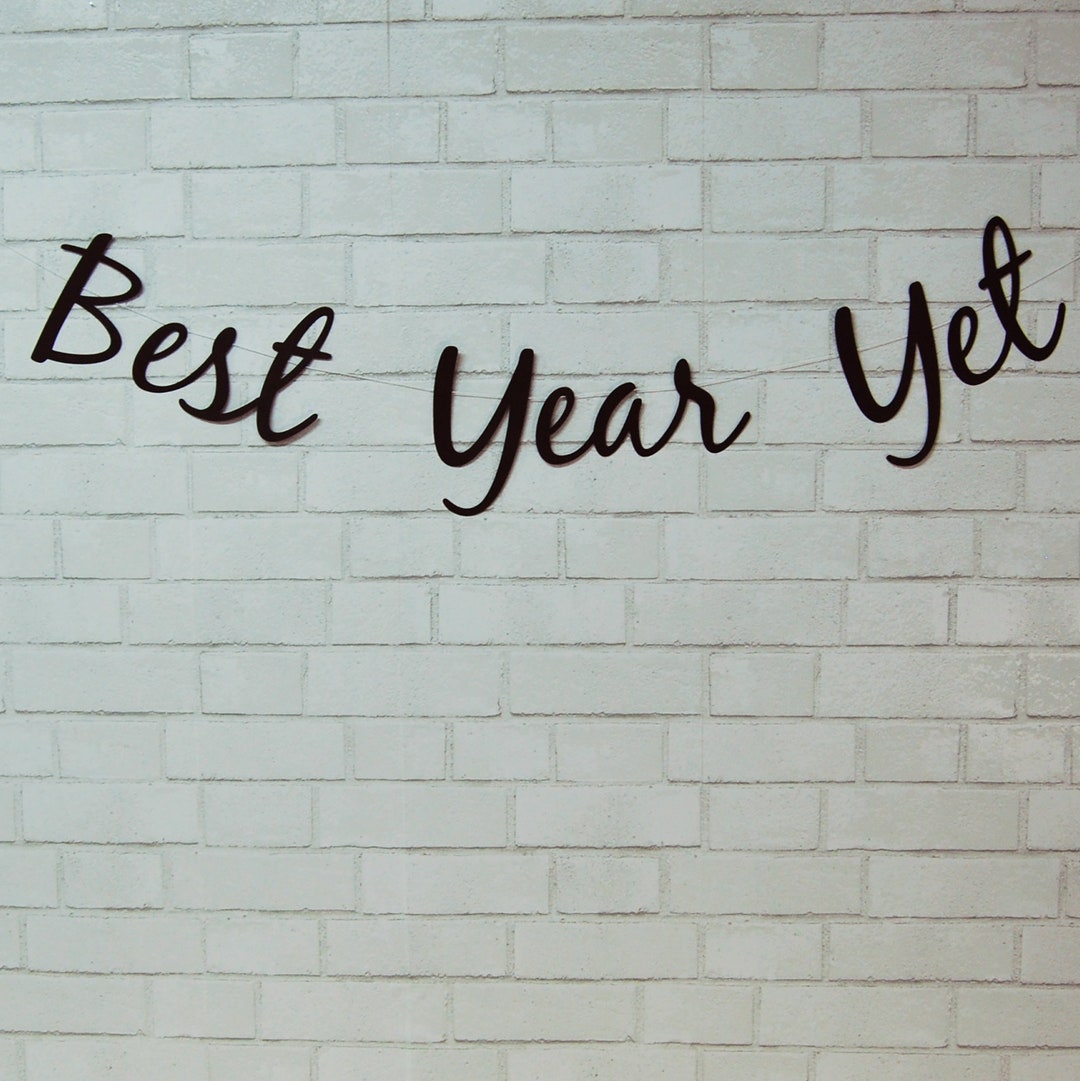 Best Year Yet